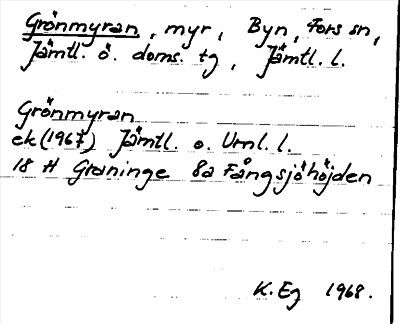 Grönmyran, myr, Byn, Fors sn,
Jämtl. ö. doms. tg, Jämtl. l.
Grönmyran
ek (1967) Jämtl. o. Vrnl. l.
18 H Graninge 8a Fångsjöhöjden
K. Eg 1968.